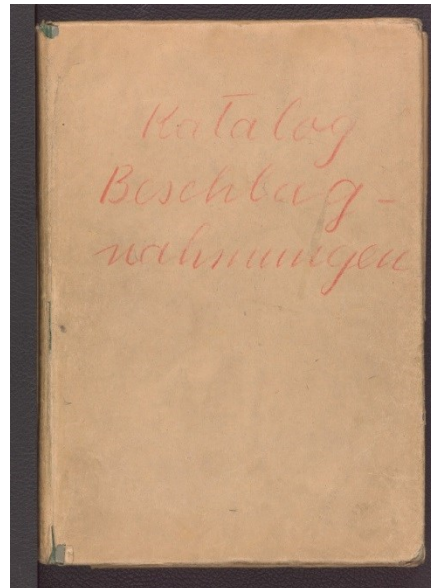 Katalog
Beschlag-
nahmungen